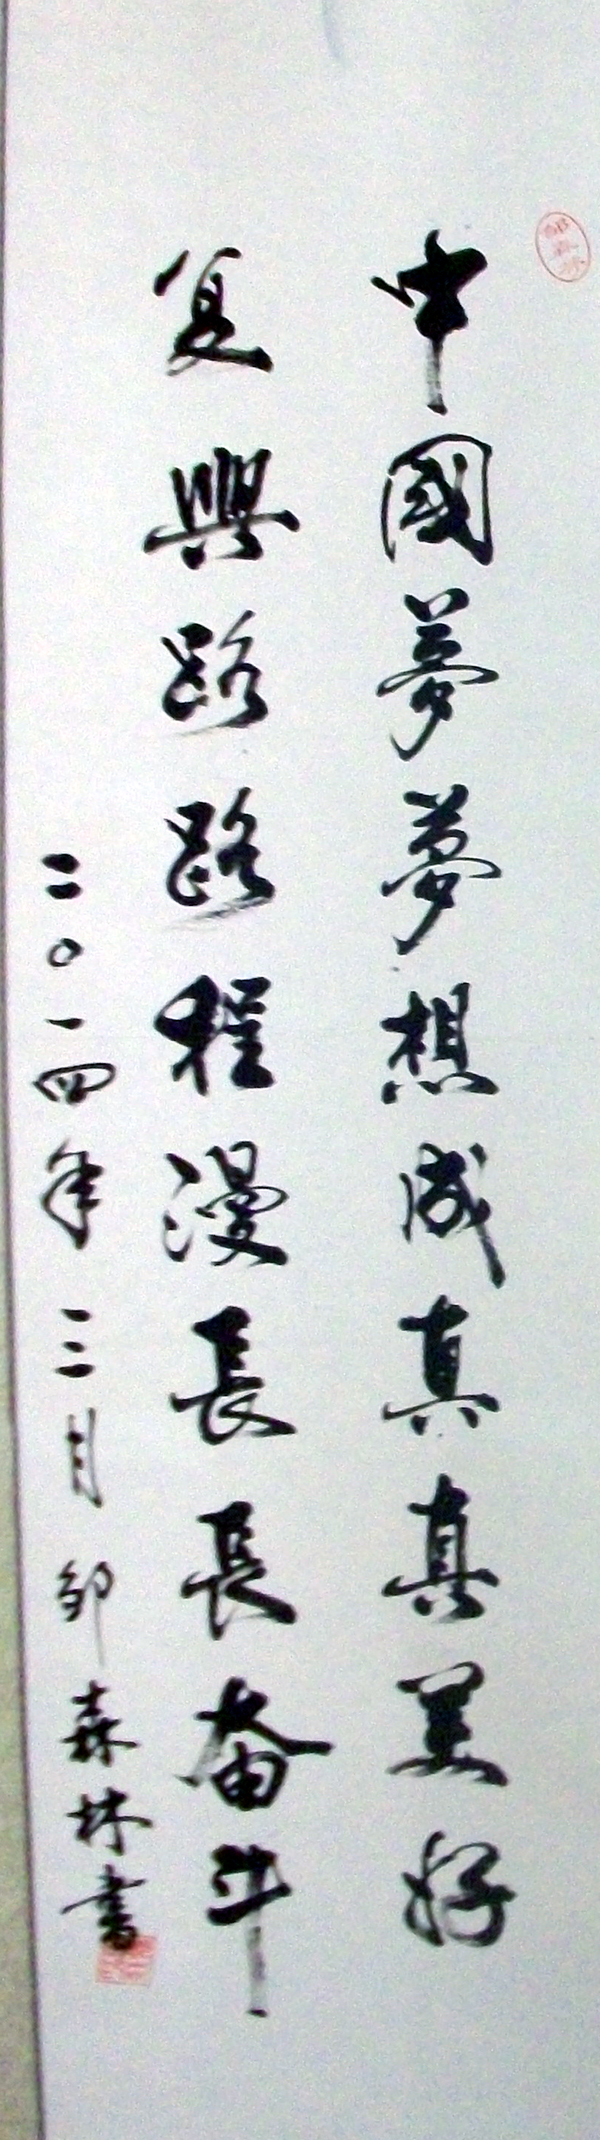 中國夢夢想成真真美好
复興路路程漫長長奋斗
二〇一四年三月邹森林書